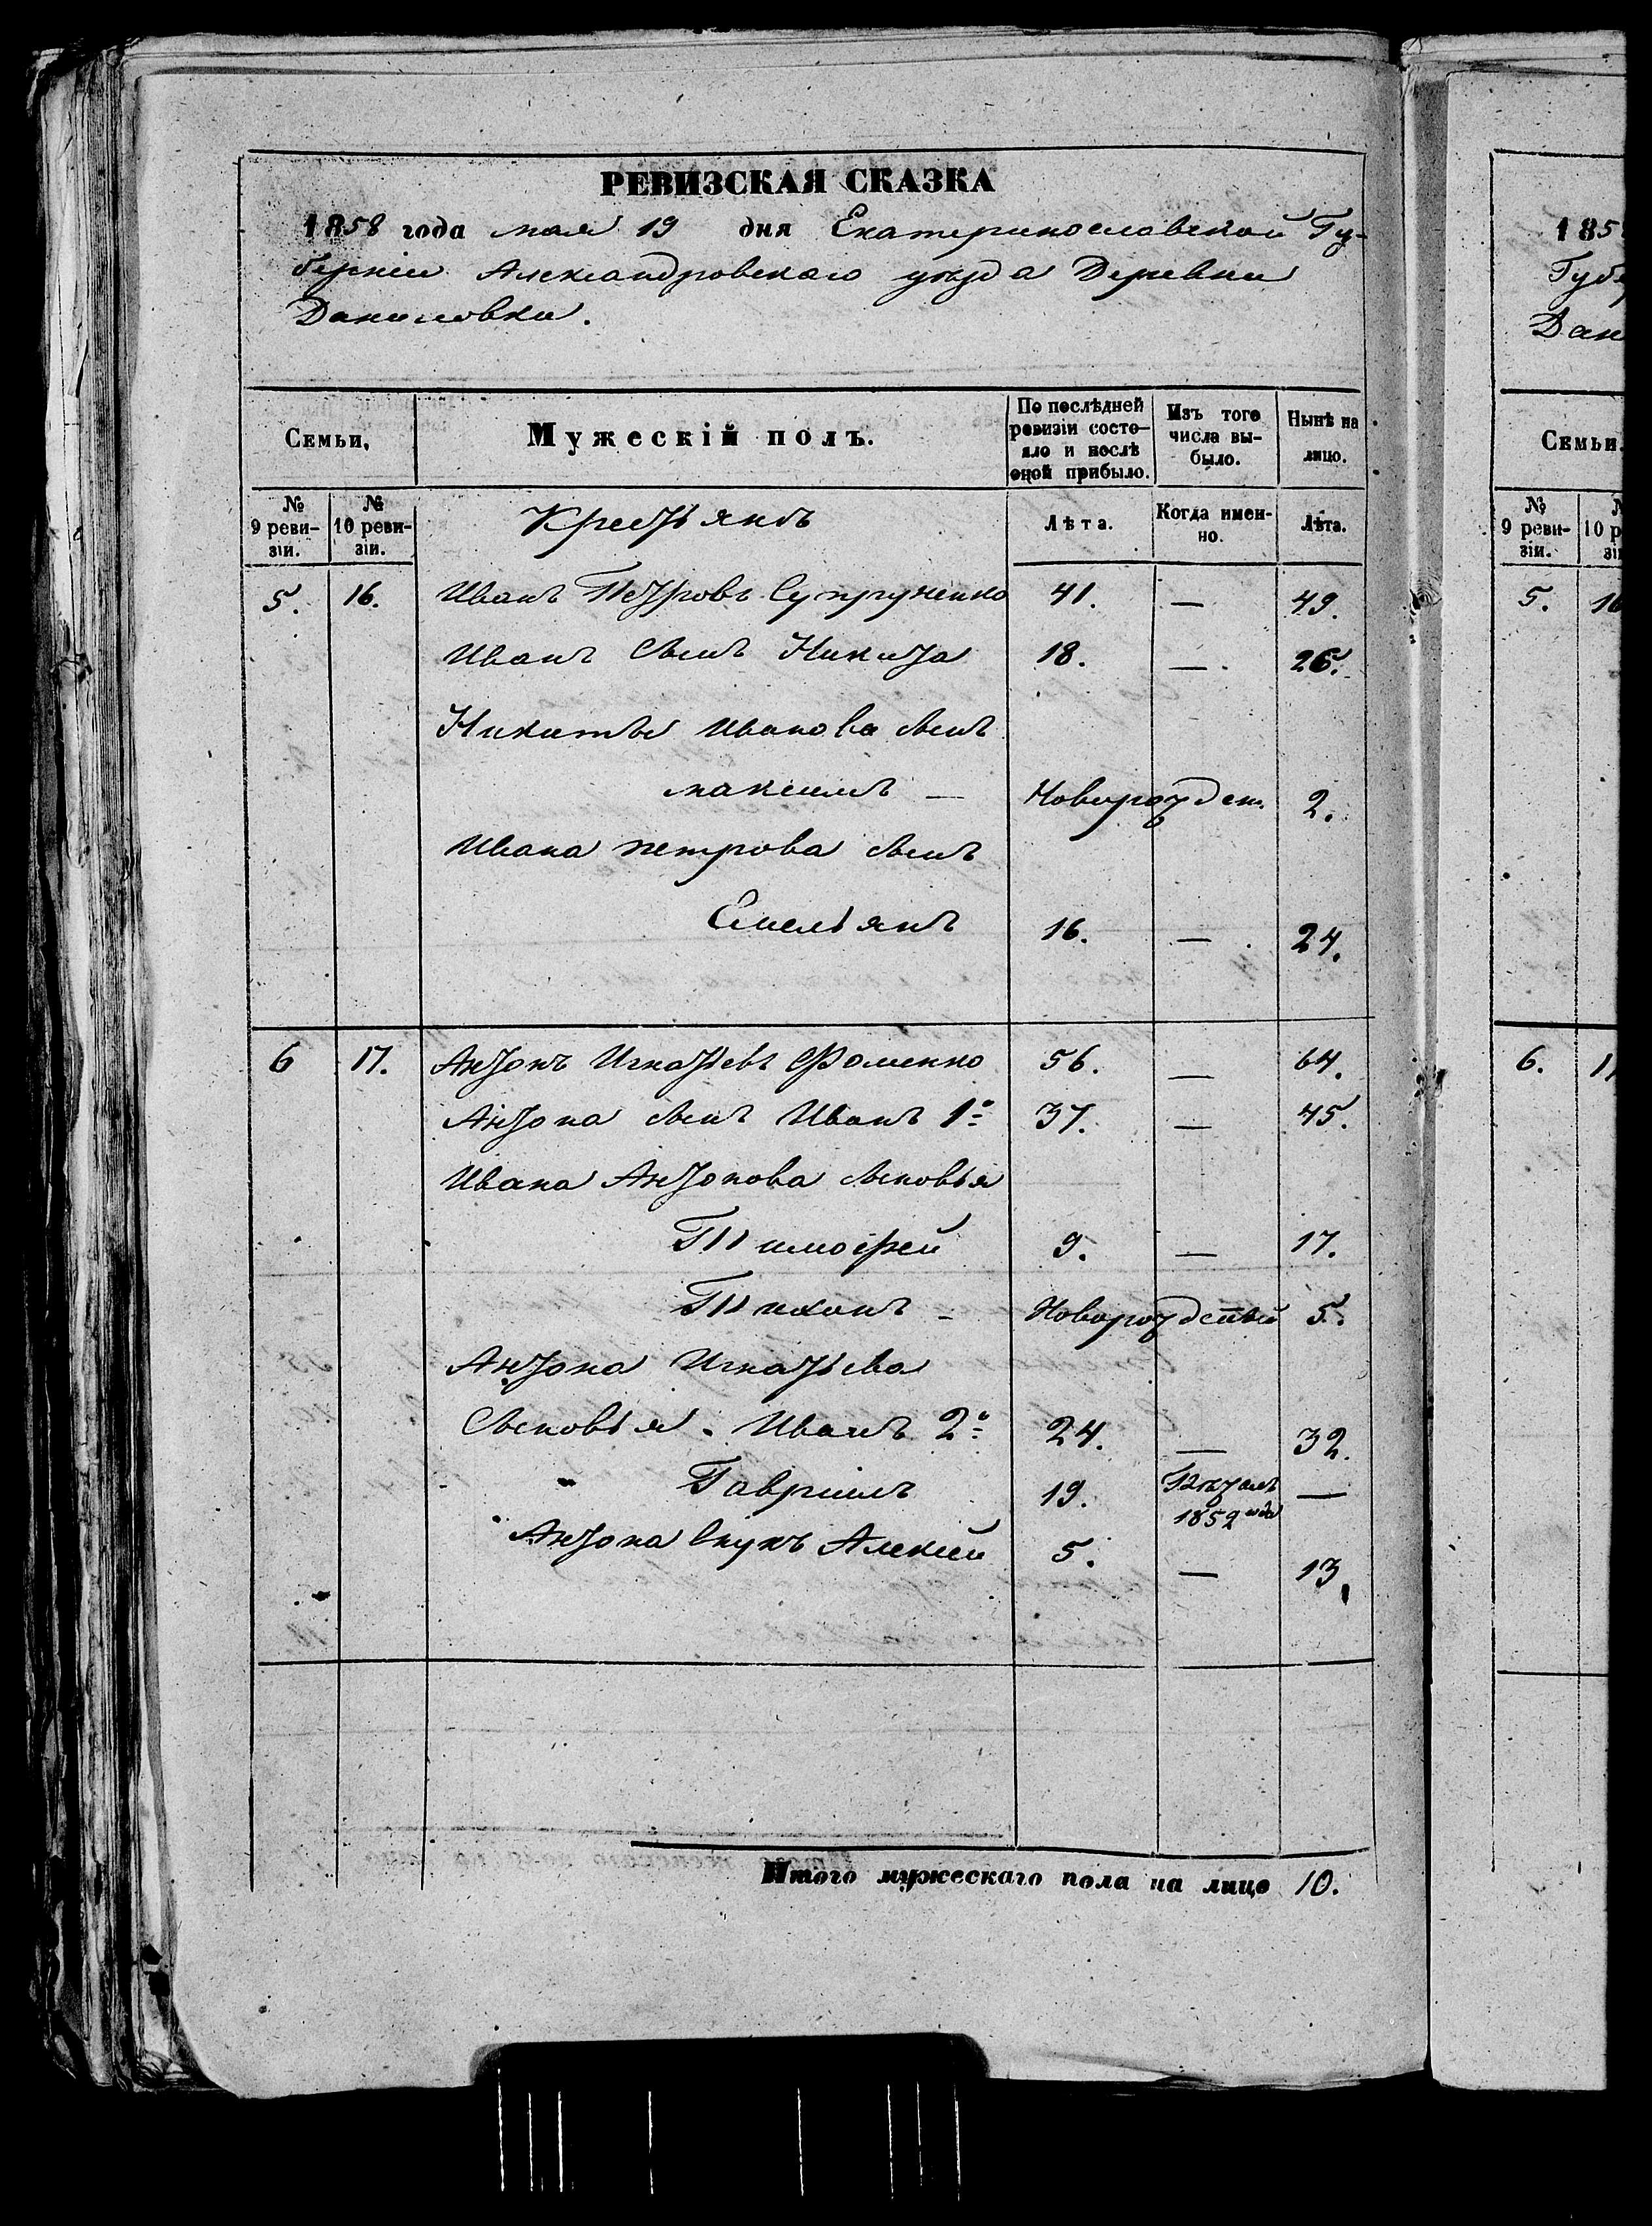 РЕВИЗСКАЯ СКАЗКА
1858 года мая 19 дня Екатеринославской Гу-
берніи Александровскаго уѣзда Деревни
Даниловки.
Семьи, Мужескій полъ. По послѣдней ревизіи состо-яло и послѣ оной прибыло. Изъ того числа вы-было. Нынѣ на лицо.
№ 9 реви-зіи. № 10 реви-зіи. Крестьянъ Лѣта. Когда имен-но. Лѣта.
5. 16. Иванъ Петровъ Супруненко 41. — 49.
Иванъ сынъ Никита 18. — 26.
Никиты Иванова сынъ
Максимъ — Новорожден. 2.
Ивана Петрова сынъ
Емельянъ 16. — 24.
6 17. Антонъ Игнатьевъ Фоменко 56. — 64.
Антона сынъ Иванъ 1й 37. — 45.
Ивана Антонова сыновья
Тимофей 9. — 17.
Тихонъ - Новорожденный 5.
Антона Игнатьева
Сыновья. Иванъ 2й 24. — 32.
Гавріилъ 19. 1852 года —
Антона внукъ Алексѣй 5. — 13.
Итого мужескаго пола на лицо 10.
185
Губе
Дан
Семьи.
№ 9 реви-зіи.
5. 16
6. 1